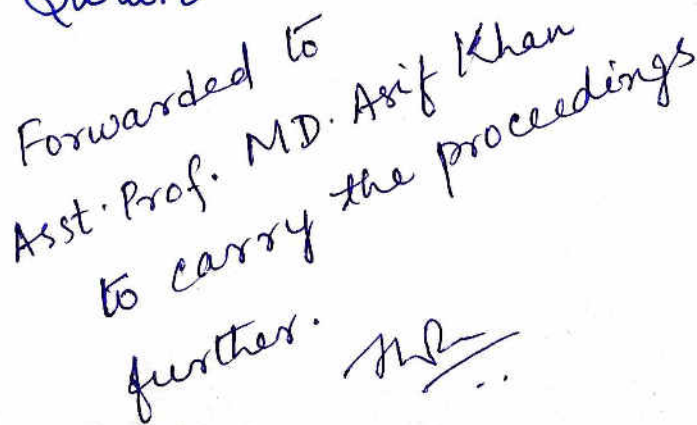 Forwarded to
Asst. Prof. MD. Asif Khan
to carry the proceedings
further.